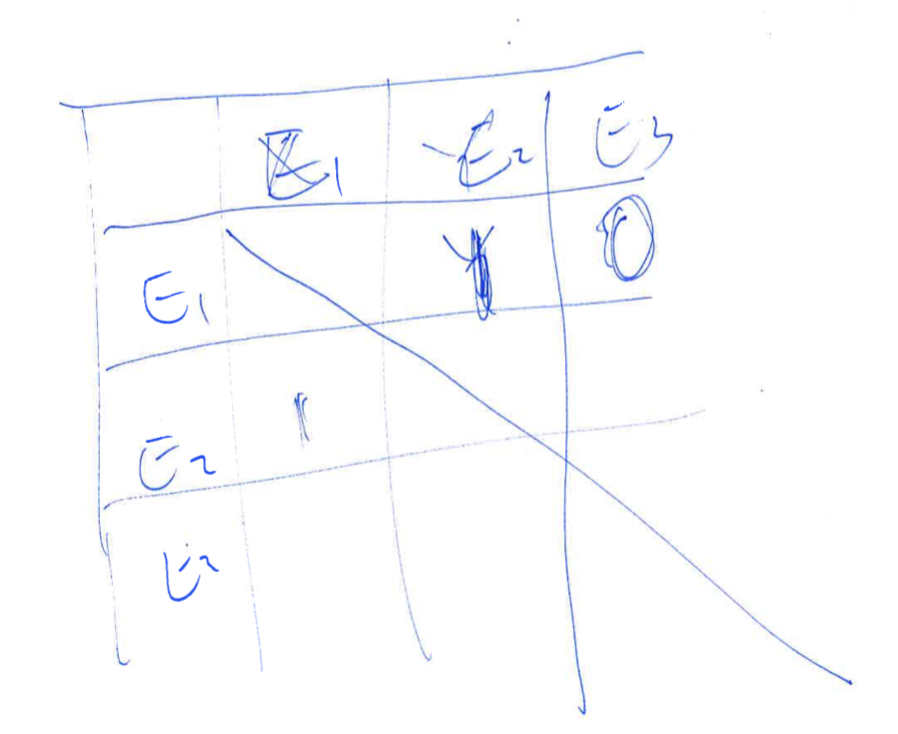 E1 E2 E3
E1 1 0
E2 1
E2